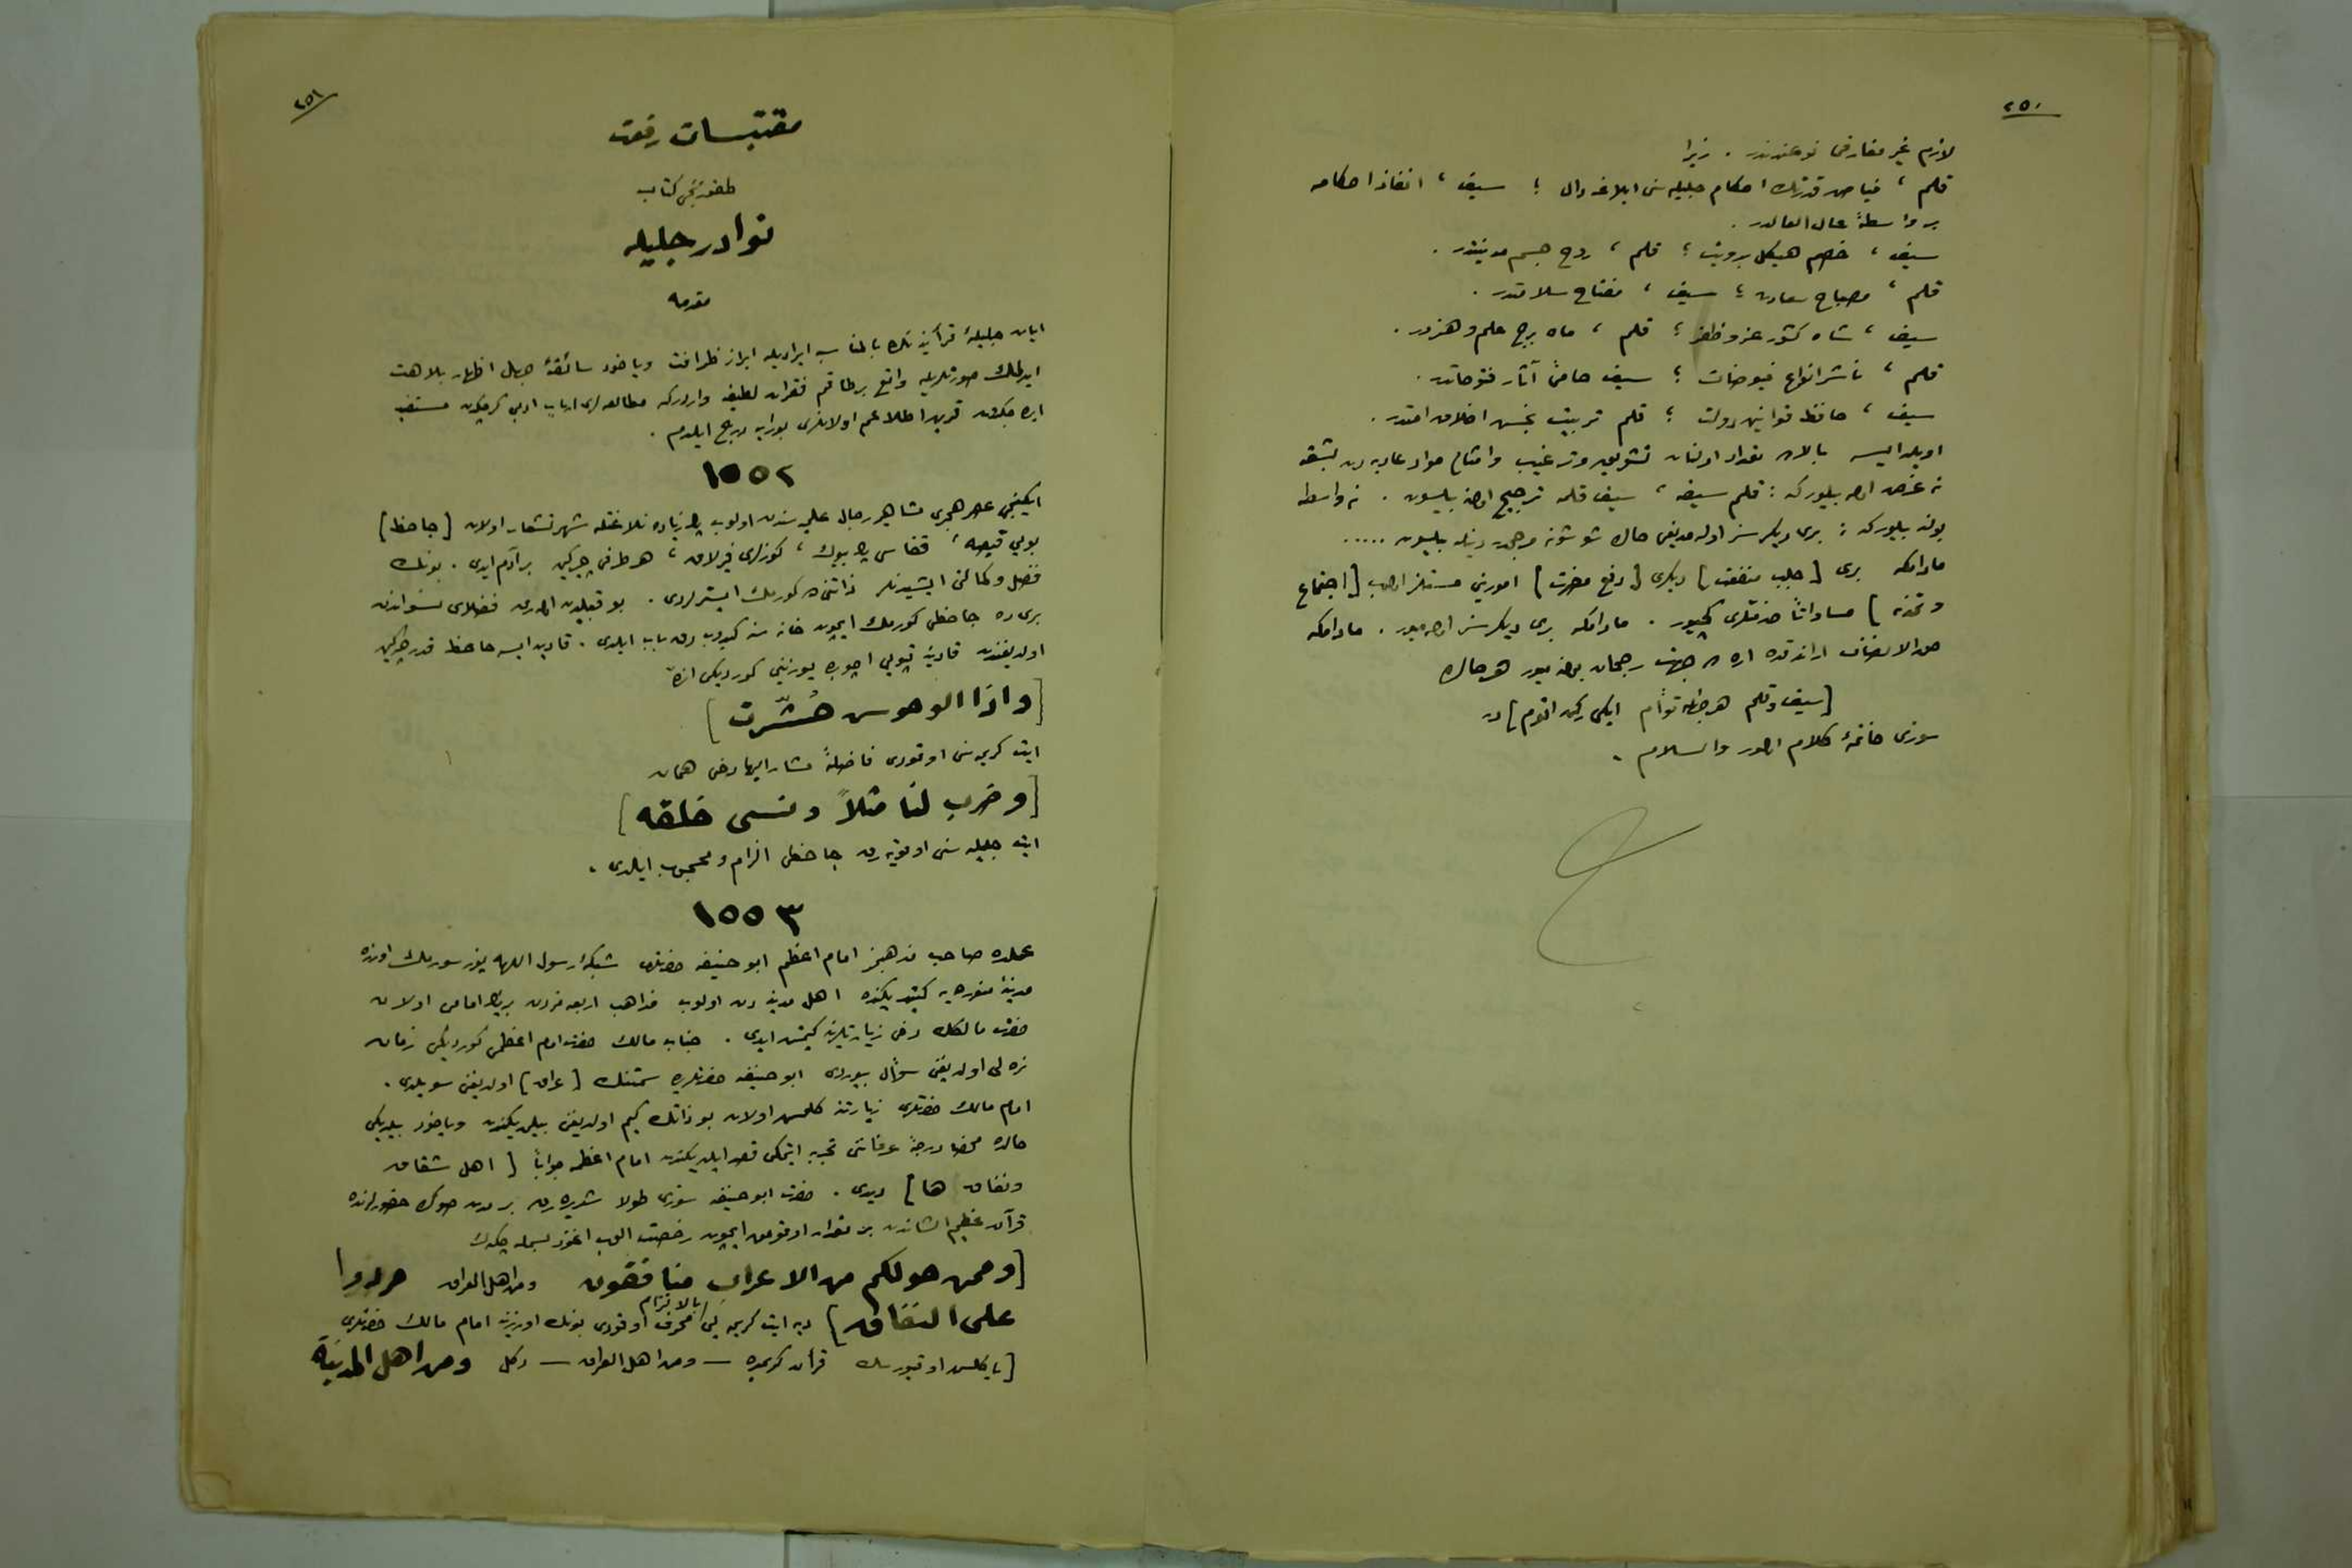 ٢٥٠
لازم غير مفارقى نوعندندر . زيرا
قلم ، فياض قدرتك احكام جليله سنى ابلاغه دال ؛ سيف ، انفاذ احكامه
بر واسطهٔ عال العالدر .
سيف ، خصم هيكل بدويت ؛ قلم ، روح جسم مدنيتدر .
قلم ، مصباح سعادت ؛ سيف ، مفتاح سلامتدر .
سيف ، شاه كشور عز و ظفر ؛ قلم ، ماه برج علم و هنردر .
قلم ، ناشر انواع فيوضات ؛ سيف حامىٔ آثار فتوحاتدر .
سيف ، حافظ قوانين دولت ؛ قلم تربيت بخش اخلاق امتدر .
اويله ايسه بالاده تعداد اولنان تشويق و ترغيب و امثالى مواد عاديه دن بشقه
نه غرض اوله بيلوركه : قلم سيفه ، سيف قلمه ترجيح اولنه بيلسون . نه واسطه
بولنه بيلوركه : برى ديكرسز اوله مديغى حالده شو شونه مرجحدر دينله بيلسون .....
مادامكه برى [ جلب منفعت ] ديكرى [ دفع مضرت ] امورينى مستلزم اولوب [ اجتماع
و تجزيه ] مساواتاً خدمتلرى كچيور . مادامكه برى ديكرسز اوله ميور . مادامكه
حد الانصاف اراندقده اره ده جهت رجحان بولنه ميور هر حالده
[ سيف و قلم هر خطه توأم ايكى ركن اقوم ] در
سوزى خاتمهٔ كلام اولور والسلام .
٢٥١
مقتبسات رفعت
طقوزنجى كتاب
نوادر جليله
مقدمه
ايات جليلهٔ قرآنيه نك بالمناسبه ايراديله ابراز ظرافت وياخود سائقهٔ جهل اظهار بلاهت
ايدلمك صورتلريله واقع برطاقم فقرات لطيفه واردركه مطالعه لرى ارباب ادبى كرچكدن مستفيد
ايده جكدن قرين اطلاعم اولانلرى بورايه درج ايلدم .
١٥٥٢
ايكنجى عصر هجرى مشاهير رجال علميه سندن اولوب پك زياده بلاغتله شهرتشعار اولان [ جاحظ ]
بويى قيصه ، قفاسى پك بيوك ، كوزلرى فيرلاق ، هر طرفى چركين بر آدم ايدى . بونك
فضل و كمالنى ايشيدنلر ذاتنى ده كورمك ايسترلردى . بو قبيلدن اولهرق فضلاى نسواندن
برى ده جاحظى كورمك ايچون خانه سنه كيدوب دق باب ايلدى . قادين ايسه جاحظ قدر چركين
اولديغندن قادينه قپويى اچوب يوزينى كورديكى انده
[ واذا الوحوس حُشّرت ]
ايت كريمه سنى اوقودى فاضلهٔ مشار اليها دخى همان
[ وضرب لنا مثلاً ونسى خلقه ]
ايت جليله سنى اوقويه رق جاحظى الزام و محجوب ايلدى .
١٥٥٣
عمله صاحب مذهبمز امام اعظم ابو حنيفه حضرتلرى شبكهٔ رسول اللهه يوز سورمك اوزره
مدينهٔ منوره يه كيتديكنده اهل مدينه دن اولوب مذاهب اربعه مزدن برينك امامى اولان
حضرت مالكك دخى زيارتلرينه كيتمش ايدى . جناب مالك حضرت امام اعظمى كورديكى زمان
نره لى اولديغنى سؤال بيوردى ابو حنيفه حضرتلرى سمتنك [ عراق ] اولديغنى سويلدى .
امام مالك حضرتلرى زيارتنه كلمش اولان بو ذاتك كيم اولديغنى بيلمديكندن وياخود بيلديكى
حالده محضا درجهٔ عرفاننى تجربه ايتمكى قصد ايلديكندن امام اعظمه جواباً [ اهل شقاق
و نفاق ها ] ديدى . حضرت ابو حنيفه سوزى طولاشديره رق بر مدت صوكره حضورلرنده
قرآن عظيم الشاندن بر مقدار اوقومق ايچون رخصت الوب اعوذ بسمله چكه رك
[ وممن حولكم من الاعراب منافقون ومن اهل العراق مردوا
على النفاق ] ديه ايت كريمه يى بالالتزام محرف اوقودى بونك اوزرينه امام مالك حضرتلرى
[ ياكلش اوقيورسك قرآن كريمده — ومن اهل العراق — دكل ومن اهل المدينة